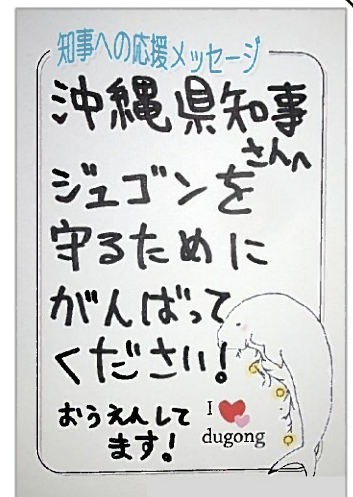 知事への応援メッセージ
沖縄県知事
さんへ
ジュゴンを
守るために
がんばって
ください!
おうえんして
ます!
I
dugong